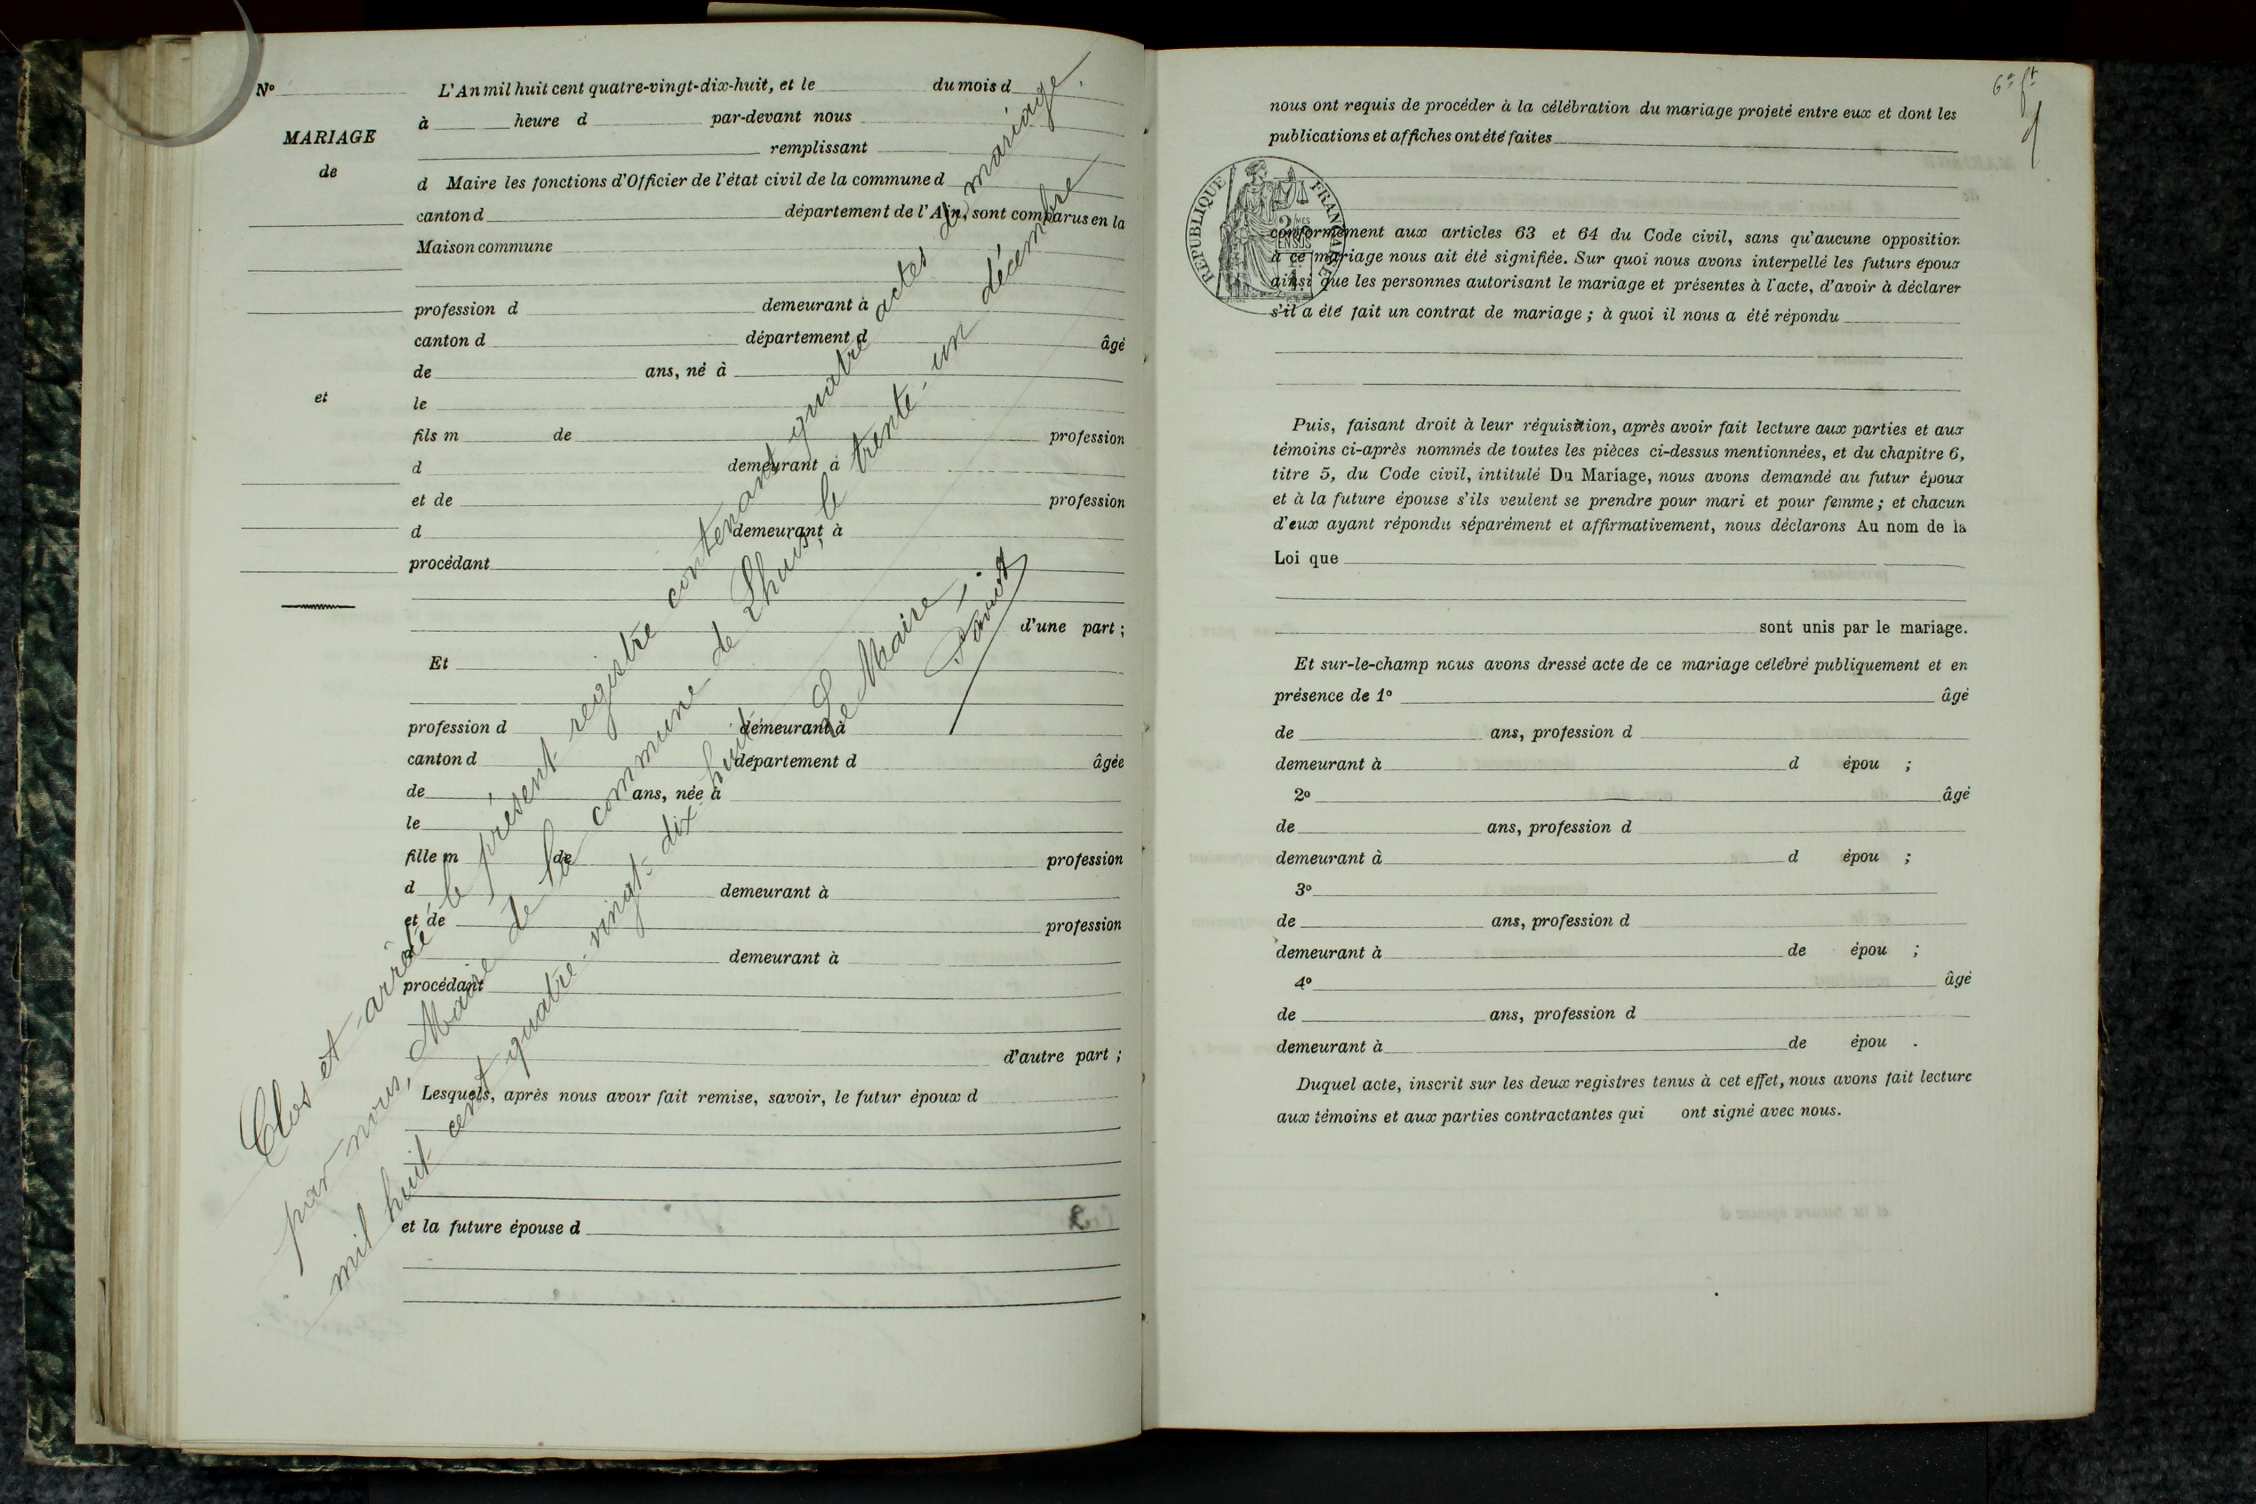 No
MARIAGE
de
et
L'An mil huit cent quatre-vingt-dix-huit, et le du mois d
à heure d par-devant nous
remplissant
d Maire les fonctions d'Officier de l'état civil de la commune d
canton d département de l'Ain, sont comparus en la
Maison commune
profession d demeurant à
canton d département d âgé
de ans, né à
le
fils m de profession
d demeurant à
et de profession
d demeurant à
procédant
d'une part ;
Et
profession d demeurant à
canton d département d âgée
de ans, née à
le
fille m de profession
d demeurant à
et de profession
d demeurant à
procédant
d'autre part ;
Lesquels, après nous avoir fait remise, savoir, le futur époux d
et la future épouse d
Clos et arrêté le présent registre contenant quatre actes de mariage.
par nous, Maire de la commune de Lhuis, le trente-un décembre
mil huit cent quatre-vingt-dix-huit
Le Maire,
6e ft
nous ont requis de procéder à la célébration du mariage projeté entre eux et dont les
publications et affiches ont été faites
RÉPUBLIQUE FRANÇAISE
conformément aux articles 63 et 64 du Code civil, sans qu'aucune opposition
à ce mariage nous ait été signifiée. Sur quoi nous avons interpellé les futurs époux
ainsi que les personnes autorisant le mariage et présentes à l'acte, d'avoir à déclarer
s'il a été fait un contrat de mariage ; à quoi il nous a été répondu
Puis, faisant droit à leur réquisition, après avoir fait lecture aux parties et aux
témoins ci-après nommés de toutes les pièces ci-dessus mentionnées, et du chapitre 6,
titre 5, du Code civil, intitulé Du Mariage, nous avons demandé au futur époux
et à la future épouse s'ils veulent se prendre pour mari et pour femme ; et chacun
d'eux ayant répondu séparément et affirmativement, nous déclarons Au nom de la
Loi que
sont unis par le mariage.
Et sur-le-champ nous avons dressé acte de ce mariage célébré publiquement et en
présence de 1o âgé
de ans, profession d
demeurant à d épou ;
2o âgé
de ans, profession d
demeurant à d épou ;
3o
de ans, profession d
demeurant à de épou ;
4o âgé
de ans, profession d
demeurant à de épou .
Duquel acte, inscrit sur les deux registres tenus à cet effet, nous avons fait lecture
aux témoins et aux parties contractantes qui ont signé avec nous.